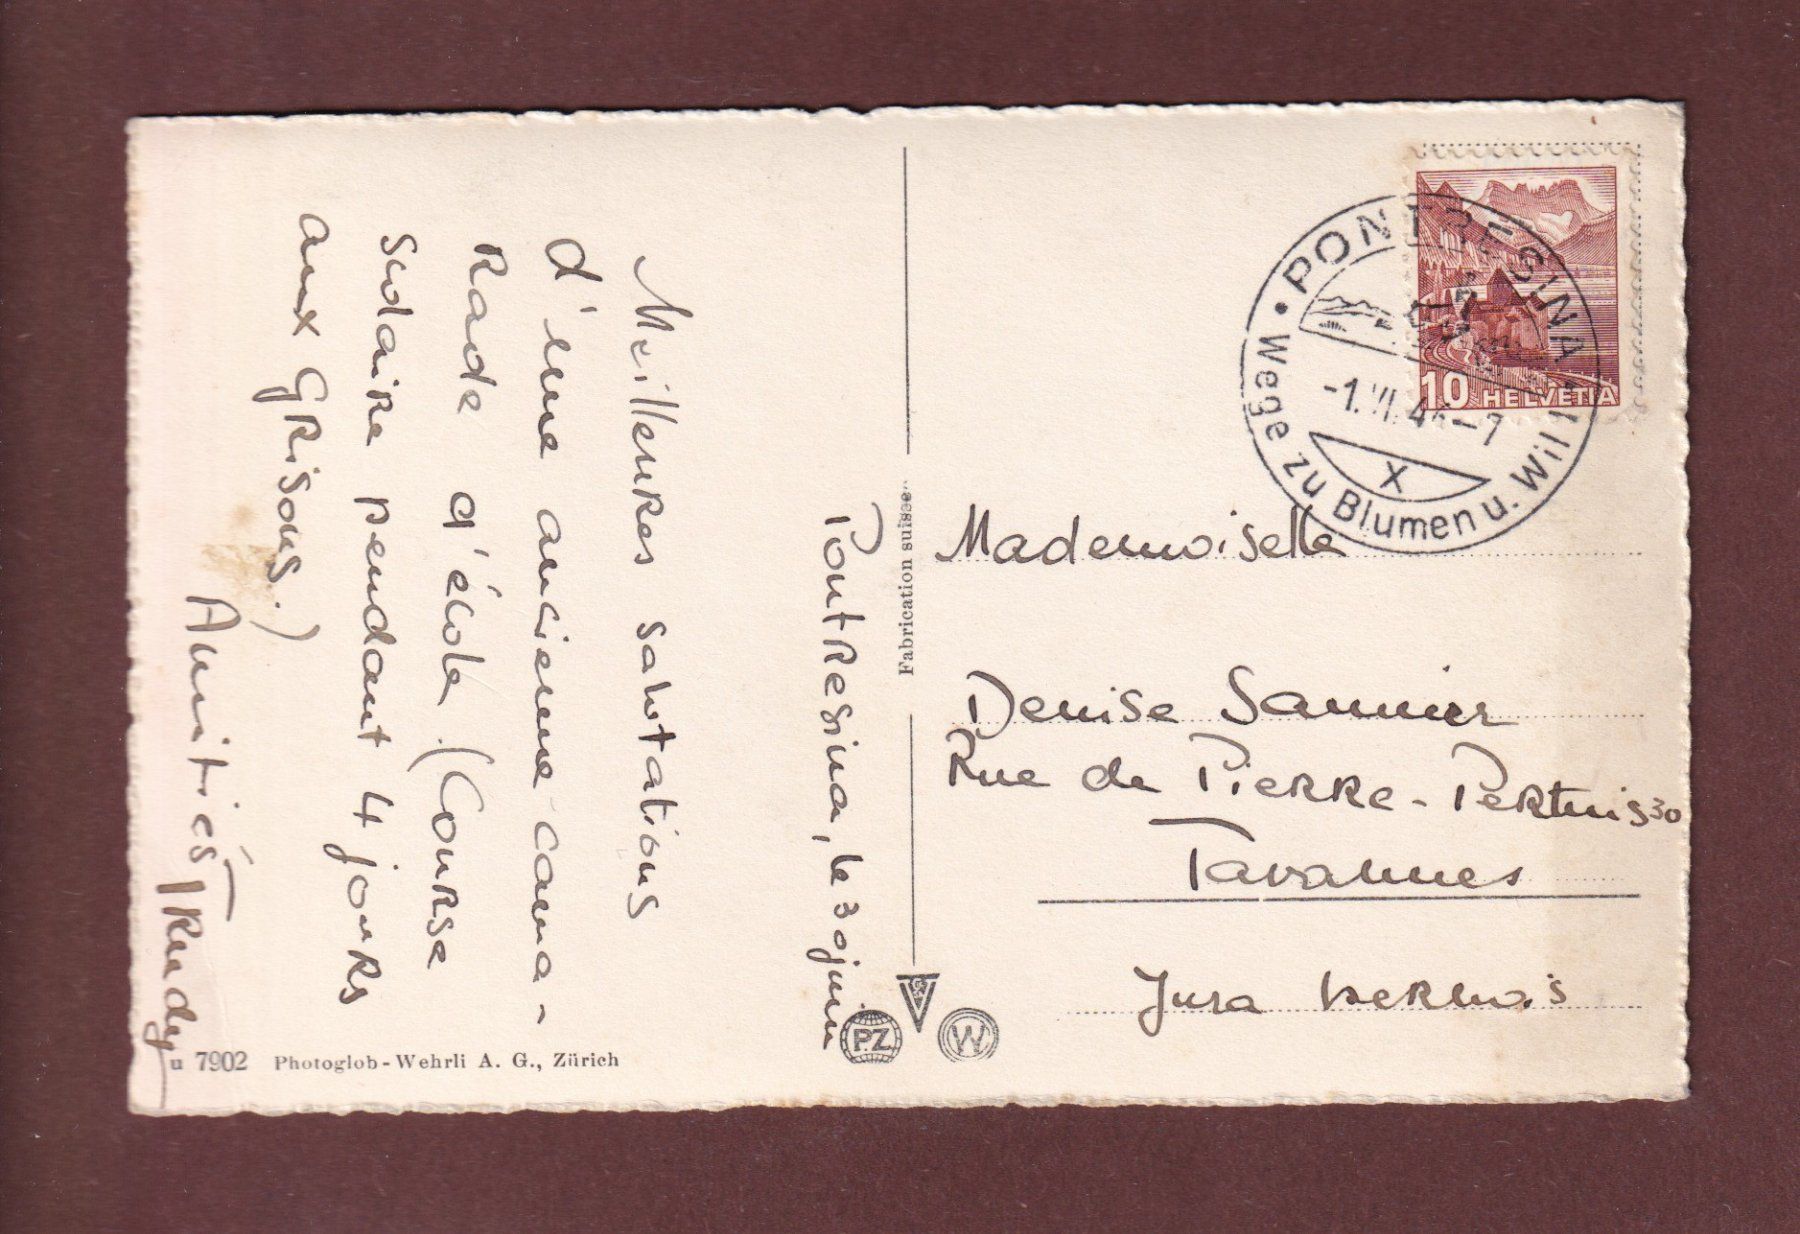 Pontresina, le 30 juin
Meilleures salutations
d'une ancienne cama-
rade d'école. (Course
scolaire pendant 4 jours
aux Grisons.)
Amitiés
Trudy
7902 Photoglob-Wehrli A. G., Zürich
Fabrication suisse
PZ
W
PONTRESINA
Wege zu Blumen u. Wild
-1.VII.46-7
X
10 HELVETIA
Mademoiselle
Denise Saunier
Rue de Pierre-Pertuis 30
Tavannes
Jura bernois